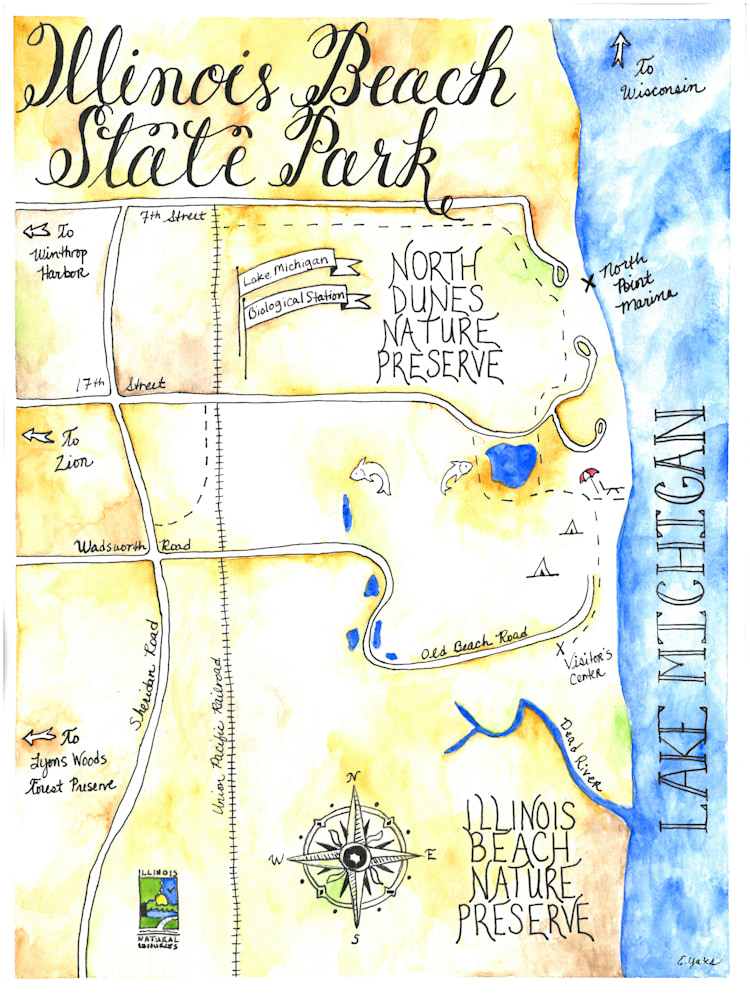 Illinois Beach
State Park
To
Wisconsin
7th Street
To
Winthrop
Harbor
Lake Michigan
Biological Station
NORTH
DUNES
NATURE
PRESERVE
North
Point
Marina
17th Street
To
Zion
LAKE MICHIGAN
Wadsworth Road
Old Beach Road
Visitor's
Center
Sheridan Road
Union Pacific Railroad
To
Lyons Woods
Forest Preserve
Dead River
N
W
E
S
ILLINOIS
BEACH
NATURE
PRESERVE
ILLINOIS
NATURAL
RESOURCES
E. Yates